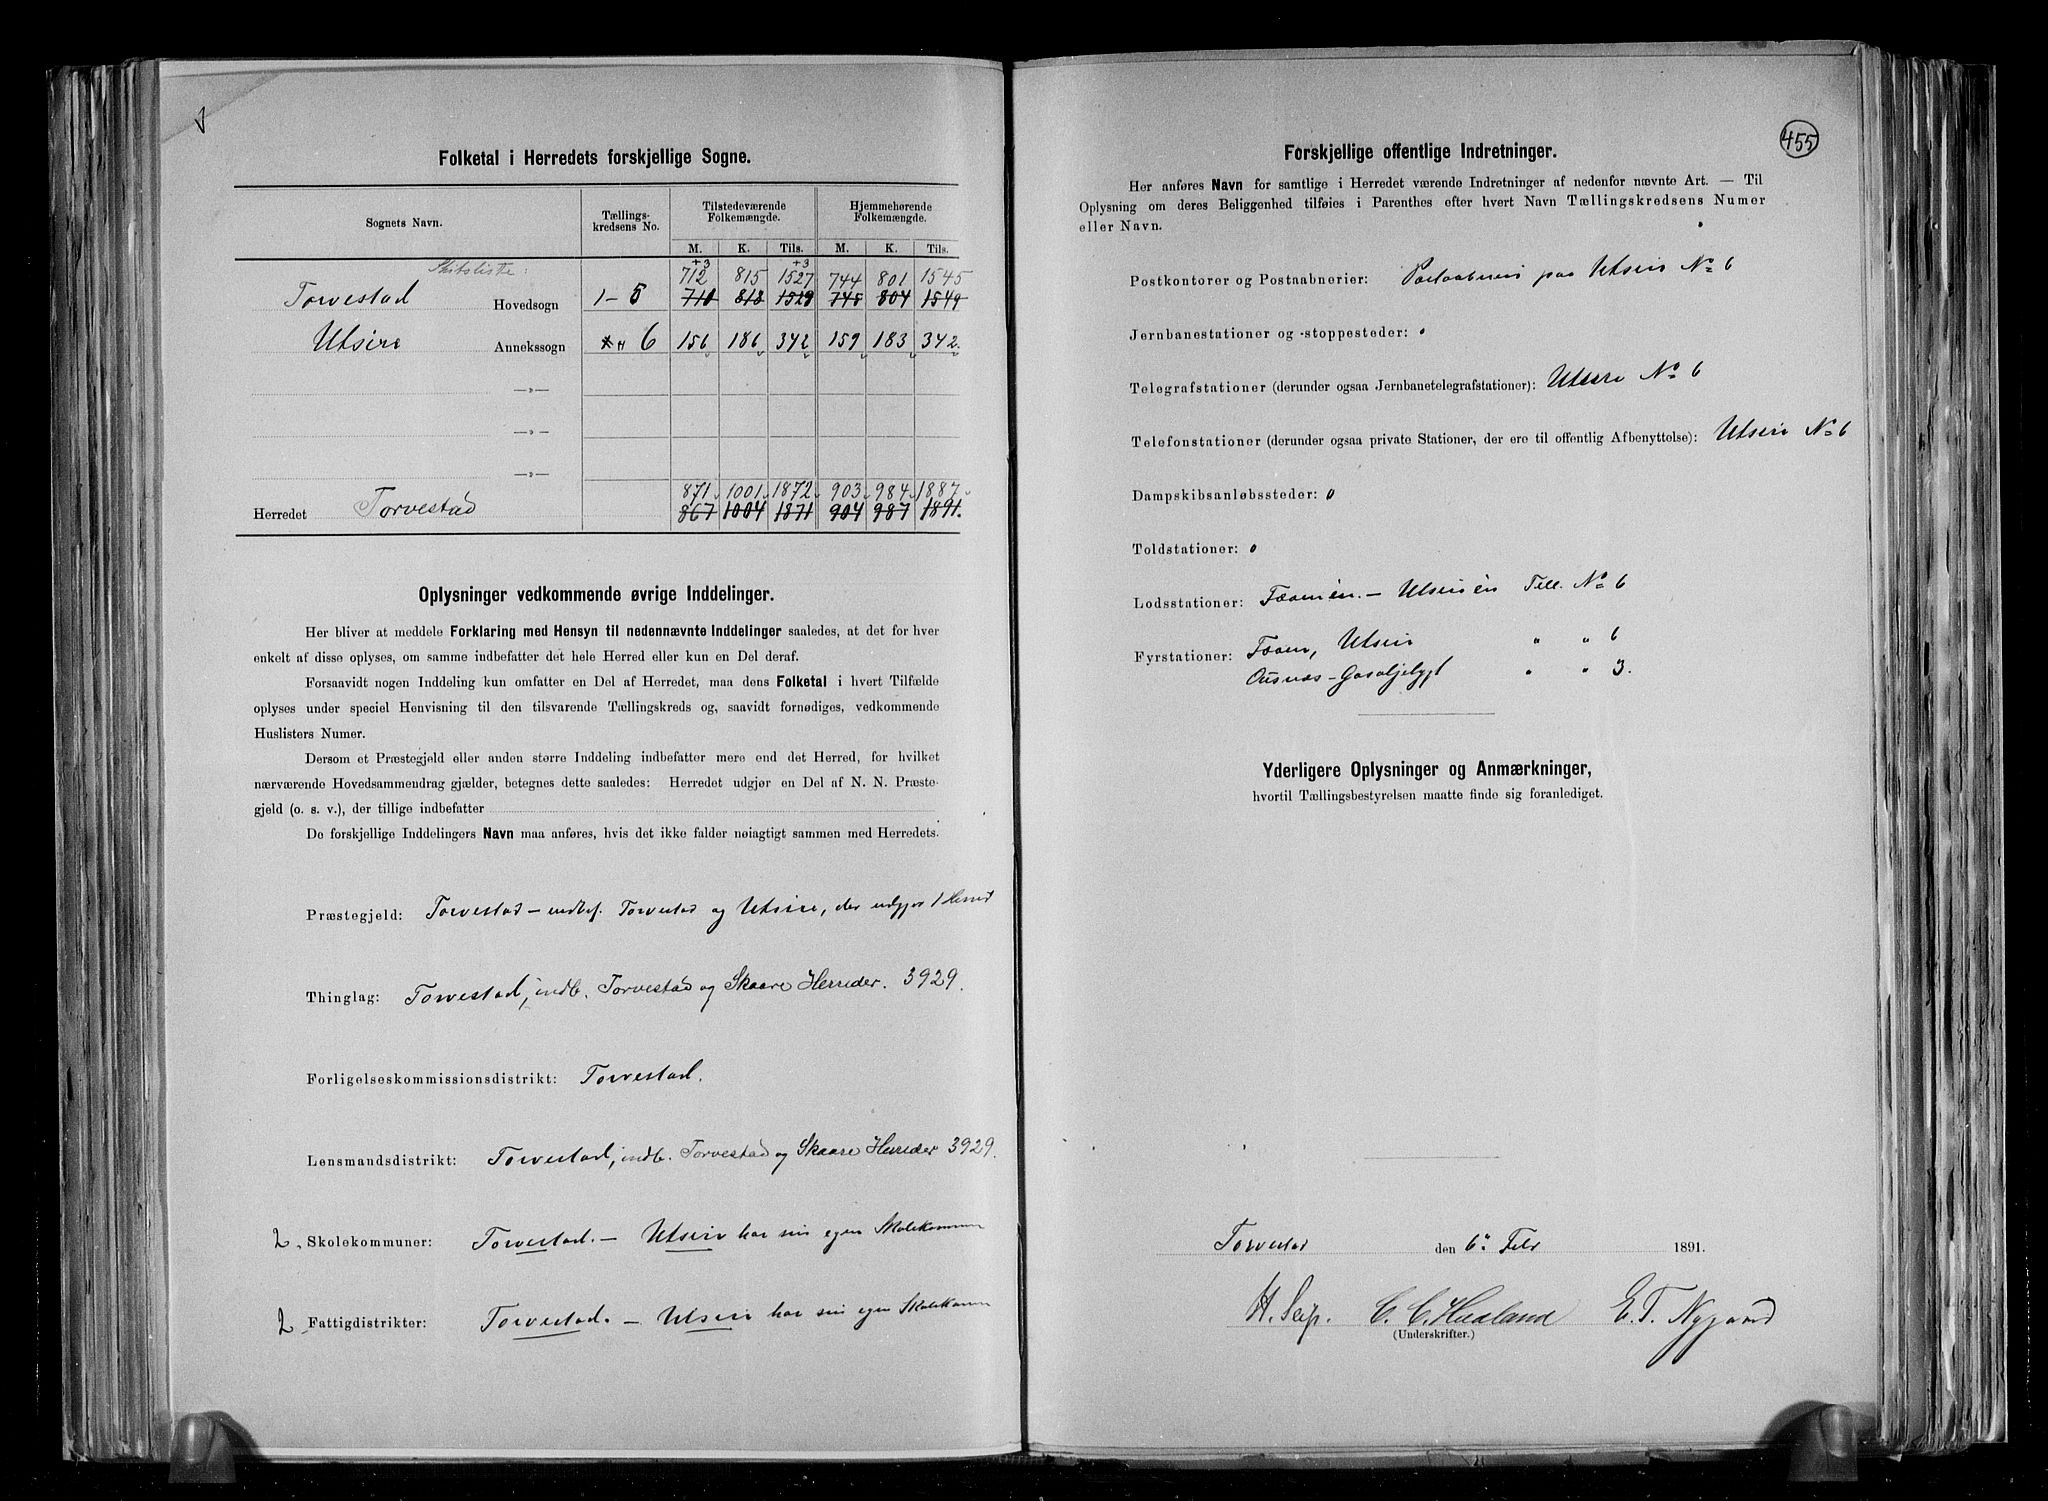 Folketal i Herredets forskjellige Sogne.
Sognets Navn. Tællings-kredsens No. Tilstedeværende Folkemængde. Hjemmehørende Folkemængde.
M. K. Tils. M. K. Tils.
+3 +3
712 815 1527 744 801 1545
Torvestad Hovedsogn 1-5 710 818 1529 745 804 1549
Utsire Annekssogn 6 156 186 342 159 183 342.
—»—
—»—
—»—
871 1001 1872 903 984 1887
Herredet Torvestad 867 1004 1871 904 987 1891.
Oplysninger vedkommende øvrige Inddelinger.
Her bliver at meddele Forklaring med Hensyn til nedennævnte Inddelinger saaledes, at det for hver
enkelt af disse oplyses, om samme indbefatter det hele Herred eller kun en Del deraf.
Forsaavidt nogen Inddeling kun omfatter en Del af Herredet, maa dens Folketal i hvert Tilfælde
oplyses under speciel Henvisning til den tilsvarende Tællingskreds og, saavidt fornødiges, vedkommende
Huslisters Numer.
Dersom et Præstegjeld eller anden større Inddeling indbefatter mere end det Herred, for hvilket
nærværende Hovedsammendrag gjælder, betegnes dette saaledes: Herredet udgjør en Del af N. N. Præste-
gjeld (o. s. v.), der tillige indbefatter
De forskjellige Inddelingers Navn maa anføres, hvis det ikke falder nøiagtigt sammen med Herredets.
Præstegjeld: Torvestad – indbef. Torvestad og Utsire, der udgjør 1 Herred
Thinglag: Torvestad, indb. Torvestad og Skaare Herreder. 3929.
Forligelseskommissionsdistrikt: Torvestad.
Lensmandsdistrikt: Torvestad, indb. Torvestad og Skaare Herreder 3929.
2 Skolekommuner: Torvestad. – Utsire har sin egen Skolekommun
2 Fattigdistrikter: Torvestad. – Utsire har sin egen Skolekomm
455
Forskjellige offentlige Indretninger.
Her anføres Navn for samtlige i Herredet værende Indretninger af nedenfor nævnte Art. — Til
Oplysning om deres Beliggenhed tilføies i Parenthes efter hvert Navn Tællingskredsens Numer
eller Navn.
Postkontorer og Postaabnerier: Postaabneri paa Utsire No 6
Jernbanestationer og -stoppesteder: 0
Telegrafstationer (derunder ogsaa Jernbanetelegrafstationer): Utsire No 6
Telefonstationer (derunder ogsaa private Stationer, der ere til offentlig Afbenyttelse): Utsire No 6
Dampskibsanløbssteder: 0
Toldstationer: 0
Lodsstationer: Utsireøen Tell. No 6
Fyrstationer: Utsire " " 6
" " 3.
Yderligere Oplysninger og Anmærkninger,
hvortil Tællingsbestyrelsen maatte finde sig foranlediget.
Torvestad den 6te Febr 1891.
H. Seip. C. C. Hauland E. T. Nygaard
(Underskrifter.)